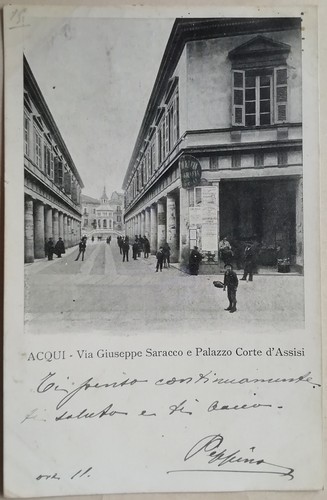 ACQUI - Via Giuseppe Saracco e Palazzo Corte d'Assisi
Ti penso continuamente
ti saluto e ti bacio.
Peppino
ore 11.